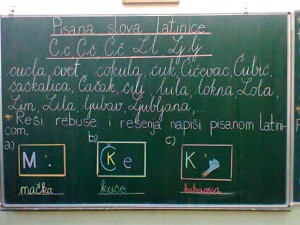 Pisana slova latinice
Cc, Čč, Ćć, Ll, Lj lj
cucla, cvet, cokula, cuk, Čičevac, Ćubić,
čačkalica, Čačak, cilj, lula, lokna, Lola,
Lim, Lila, ljubav, Ljubljana,...
* Reši rebuse i rešenja napiši pisanom latini-
com.
a) b) c)
M : Ć K e K
mačka kuće